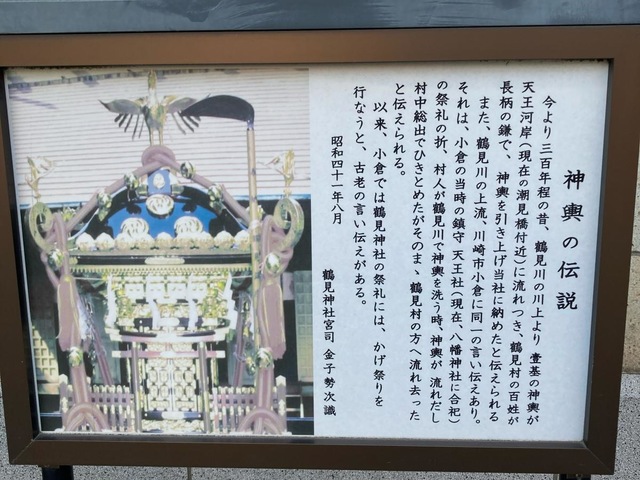 神輿の伝説
今より三百年程の昔、鶴見川の川上より 壹基の神輿が
天王河岸(現在の潮見橋付近)に流れつき、鶴見村の百姓が
長柄の鎌で、神輿を引き上げ当社に納めたと伝えられる
また、鶴見川の上流、川崎市小倉に同一の言い伝えあり。
それは、小倉の当時の鎮守 天王社(現在、八幡神社に合祀)
の祭礼の折、村人が鶴見川で神輿を洗う時、神輿が 流れだし
村中総出でひきとめたがそのまゝ鶴見村の方へ流れ去った
と伝えられる。
以来、小倉では鶴見神社の祭礼には、かげ祭りを
行なうと、古老の言い伝えがある。
昭和四十一年八月
鶴見神社宮司 金子勢次識